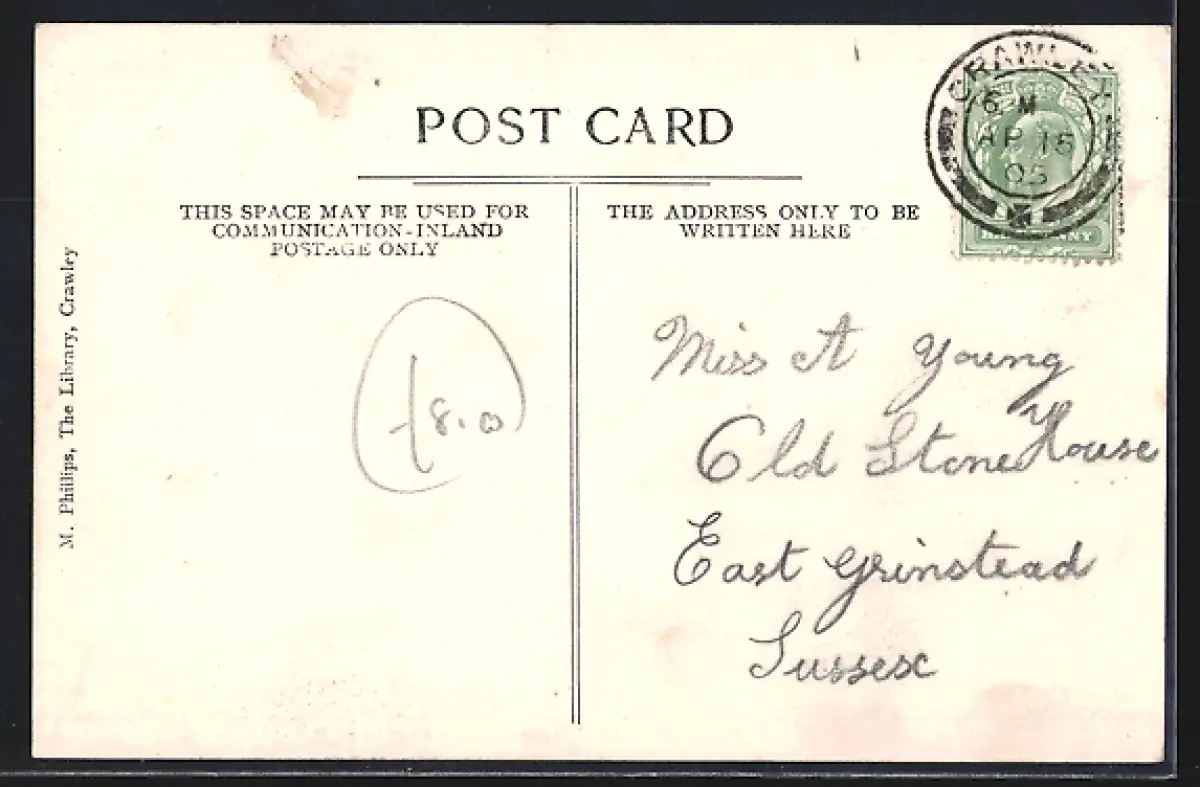 POST CARD
THIS SPACE MAY BE USED FOR
COMMUNICATION-INLAND
POSTAGE ONLY
THE ADDRESS ONLY TO BE
WRITTEN HERE
CRAWLEY
AP 15
05
PENNY
M. Phillips, The Library, Crawley
Miss A Young
Old Stone House
East Grinstead
Sussex